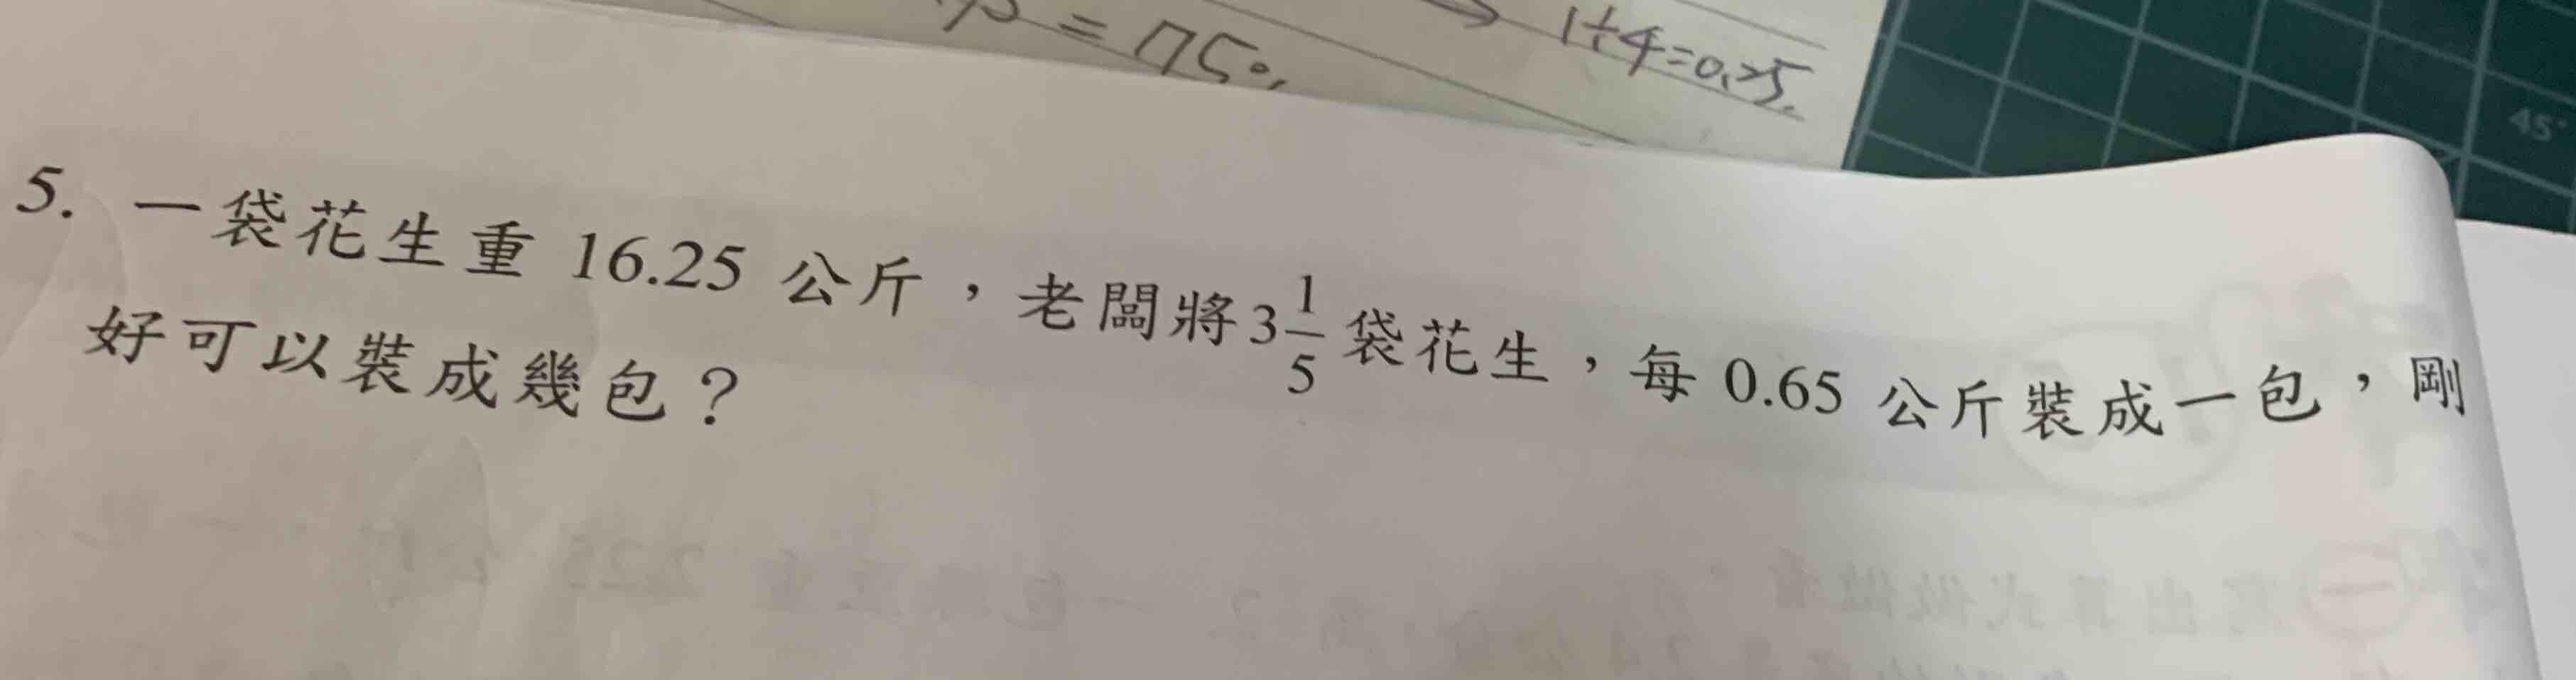 = 75%
→ 1÷4=0.25
45°
5. 一袋花生重 16.25 公斤，老闆將3 1/5 袋花生，每 0.65 公斤裝成一包，剛
好可以裝成幾包？